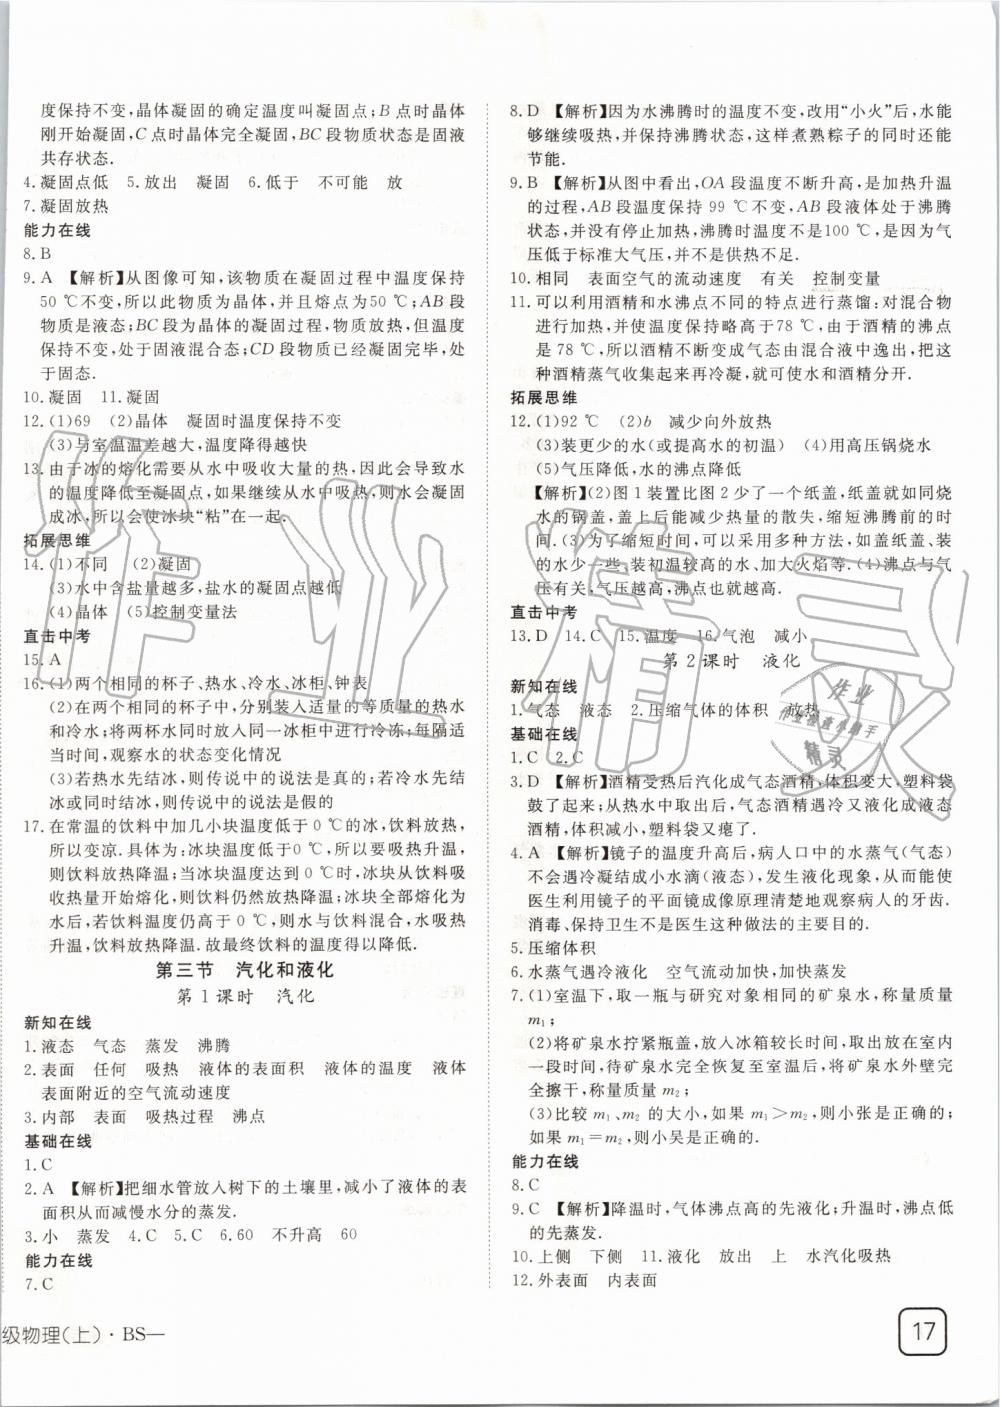 度保持不变,晶体凝固的确定温度叫凝固点;B 点时晶体
刚开始凝固,C 点时晶体完全凝固,BC 段物质状态是固液
共存状态.
4.凝固点低 5.放出 凝固 6.低于 不可能 放
7.凝固放热
能力在线
8.B
9.A 【解析】从图像可知,该物质在凝固过程中温度保持
50 ℃不变,所以此物质为晶体,并且熔点为50 ℃;AB段
物质是液态;BC段为晶体的凝固过程,物质放热,但温度
保持不变,处于固液混合态;CD段物质已经凝固完毕,处
于固态.
10.凝固 11.凝固
12.(1)69 (2)晶体 凝固时温度保持不变
(3)与室温温差越大,温度降得越快
13.由于冰的熔化需要从水中吸收大量的热,因此会导致水
的温度降低至凝固点,如果继续从水中吸热,则水会凝固
成冰,所以会使冰块“粘”在一起.
拓展思维
14.(1)不同 (2)凝固
(3)水中含盐量越多,盐水的凝固点越低
(4)晶体 (5)控制变量法
直击中考
15.A
16.(1)两个相同的杯子、热水、冷水、冰柜、钟表
(2)在两个相同的杯子中,分别装入适量的等质量的热水
和冷水;将两杯水同时放入同一冰柜中进行冷冻;每隔适
当时间,观察水的状态变化情况
(3)若热水先结冰,则传说中的说法是真的;若冷水先结
冰或同时结冰,则传说中的说法是假的
17.在常温的饮料中加几小块温度低于0 ℃的冰,饮料放热,
所以变凉.具体为:冰块温度低于0 ℃,所以要吸热升温,
则饮料放热降温;当冰块温度达到0 ℃时,冰块从饮料吸
收热量开始熔化,则饮料仍然放热降温;冰块全部熔化为
水后,若饮料温度仍高于0 ℃,则水与饮料混合,水吸热
升温,饮料放热降温.故最终饮料的温度得以降低.
第三节 汽化和液化
第1课时 汽化
新知在线
1.液态 气态 蒸发 沸腾
2.表面 任何 吸热 液体的表面积 液体的温度 液体
表面附近的空气流动速度
3.内部 表面 吸热过程 沸点
基础在线
1.C
2.A 【解析】把细水管放入树下的土壤里,减小了液体的表
面积从而减慢水分的蒸发.
3.小 蒸发 4.C 5.C 6.60 不升高 60
能力在线
7.C
级物理(上)·BS—
8.D 【解析】因为水沸腾时的温度不变,改用“小火”后,水能
够继续吸热,并保持沸腾状态,这样煮熟粽子的同时还能
节能.
9.B 【解析】从图中看出,OA段温度不断升高,是加热升温
的过程,AB段温度保持 99 ℃不变,AB段液体处于沸腾
状态,并没有停止加热,沸腾时温度不是100 ℃,是因为气
压低于标准大气压,并不是供热不足.
10.相同 表面空气的流动速度 有关 控制变量
11.可以利用酒精和水沸点不同的特点进行蒸馏:对混合物
进行加热,并使温度保持略高于78 ℃,由于酒精的沸点
是 78 ℃,所以酒精不断变成气态由混合液中逸出,把这
种酒精蒸气收集起来再冷凝,就可使水和酒精分开.
拓展思维
12.(1)92 ℃ (2)b 减少向外放热
(3)装更少的水(或提高水的初温) (4)用高压锅烧水
(5)气压降低,水的沸点降低
【解析】(2)图1装置比图2少了一个纸盖,纸盖就如同烧
水的锅盖,盖上后能减少热量的散失,缩短沸腾前的时
间.(3)为了缩短时间,可以采用多种方法,如盖纸盖、装
的水少一些、装初温较高的水、加大火焰等.(4)沸点与气
压有关,气压越高,沸点也就越高.
直击中考
13.D 14.C 15.温度 16.气泡 减小
第2课时 液化
新知在线
1.气态 液态 2.压缩气体的体积 放热
基础在线
1.C 2.C
3.D 【解析】酒精受热后汽化成气态酒精,体积变大,塑料袋
鼓了起来;从热水中取出后,气态酒精遇冷又液化成液态
酒精,体积减小,塑料袋又瘪了.
4.A 【解析】镜子的温度升高后,病人口中的水蒸气(气态)
不会遇冷凝结成小水滴(液态),发生液化现象,从而能使
医生利用镜子的平面镜成像原理清楚地观察病人的牙齿.
消毒、保持卫生不是医生这种做法的主要目的.
5.压缩体积
6.水蒸气遇冷液化 空气流动加快,加快蒸发
7.(1)室温下,取一瓶与研究对象相同的矿泉水,称量质量
m₁;
(2)将矿泉水拧紧瓶盖,放入冰箱较长时间,取出,在室内
一段时间,待矿泉水完全恢复至室温后,将矿泉水外壁完
全擦干,称量质量 m₂;
(3)比较 m₁、m₂ 的大小,如果 m₁>m₂,则小张是正确的;
如果 m₁=m₂,则小吴是正确的.
能力在线
8.C
9.C 【解析】降温时,气体沸点高的先液化;升温时,沸点低
的先蒸发.
10.上侧 下侧 11.液化 放出 上 水汽化吸热
12.外表面 内表面
17
作业精灵
作业
作业检查小助手
精灵